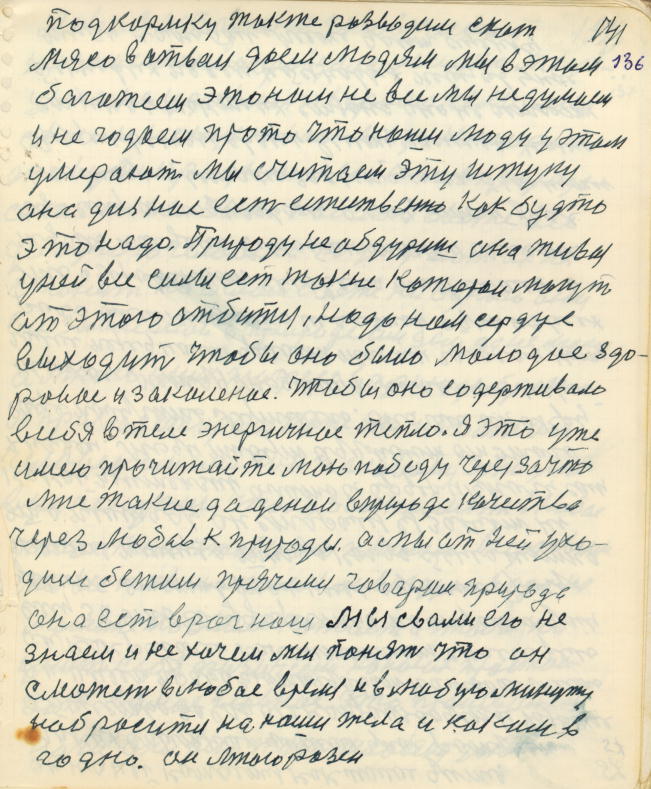 подкормку также розводим скот 141
мясо в отвал даем людям мы в этом 136
богатеем это нам не все мы не думаем
и не гадаем про то что наши люди у этом
умирают. мы считаем эту штуку
она для нас ест естественно как будто
это надо. Природу не обдуриш она живая
у ней все силы ест такие которои могут
от этого отбити, надо нам сердце
выходит чтобы оно было молодое здо-
ровое и закаленое. чтобы оно содерживало
в себя в теле энергичное тепло. Я это уже
имею прочитайте мою победу через за что
мне такие даденои в природе качества
через любов к природы. а мы от ней ухо-
дим бежим прячемси говорим природа
она ест враг наш мы свами его не
знаем и не хочем мы понят что он
сможет в любое время и в любую минуту
набросится на наши тела и каким в
годно. он многоразен